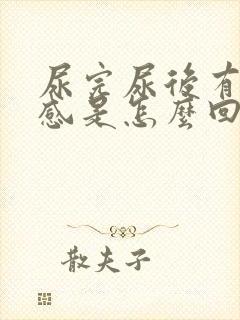 尿完尿後有
感是怎麼回
散夫子